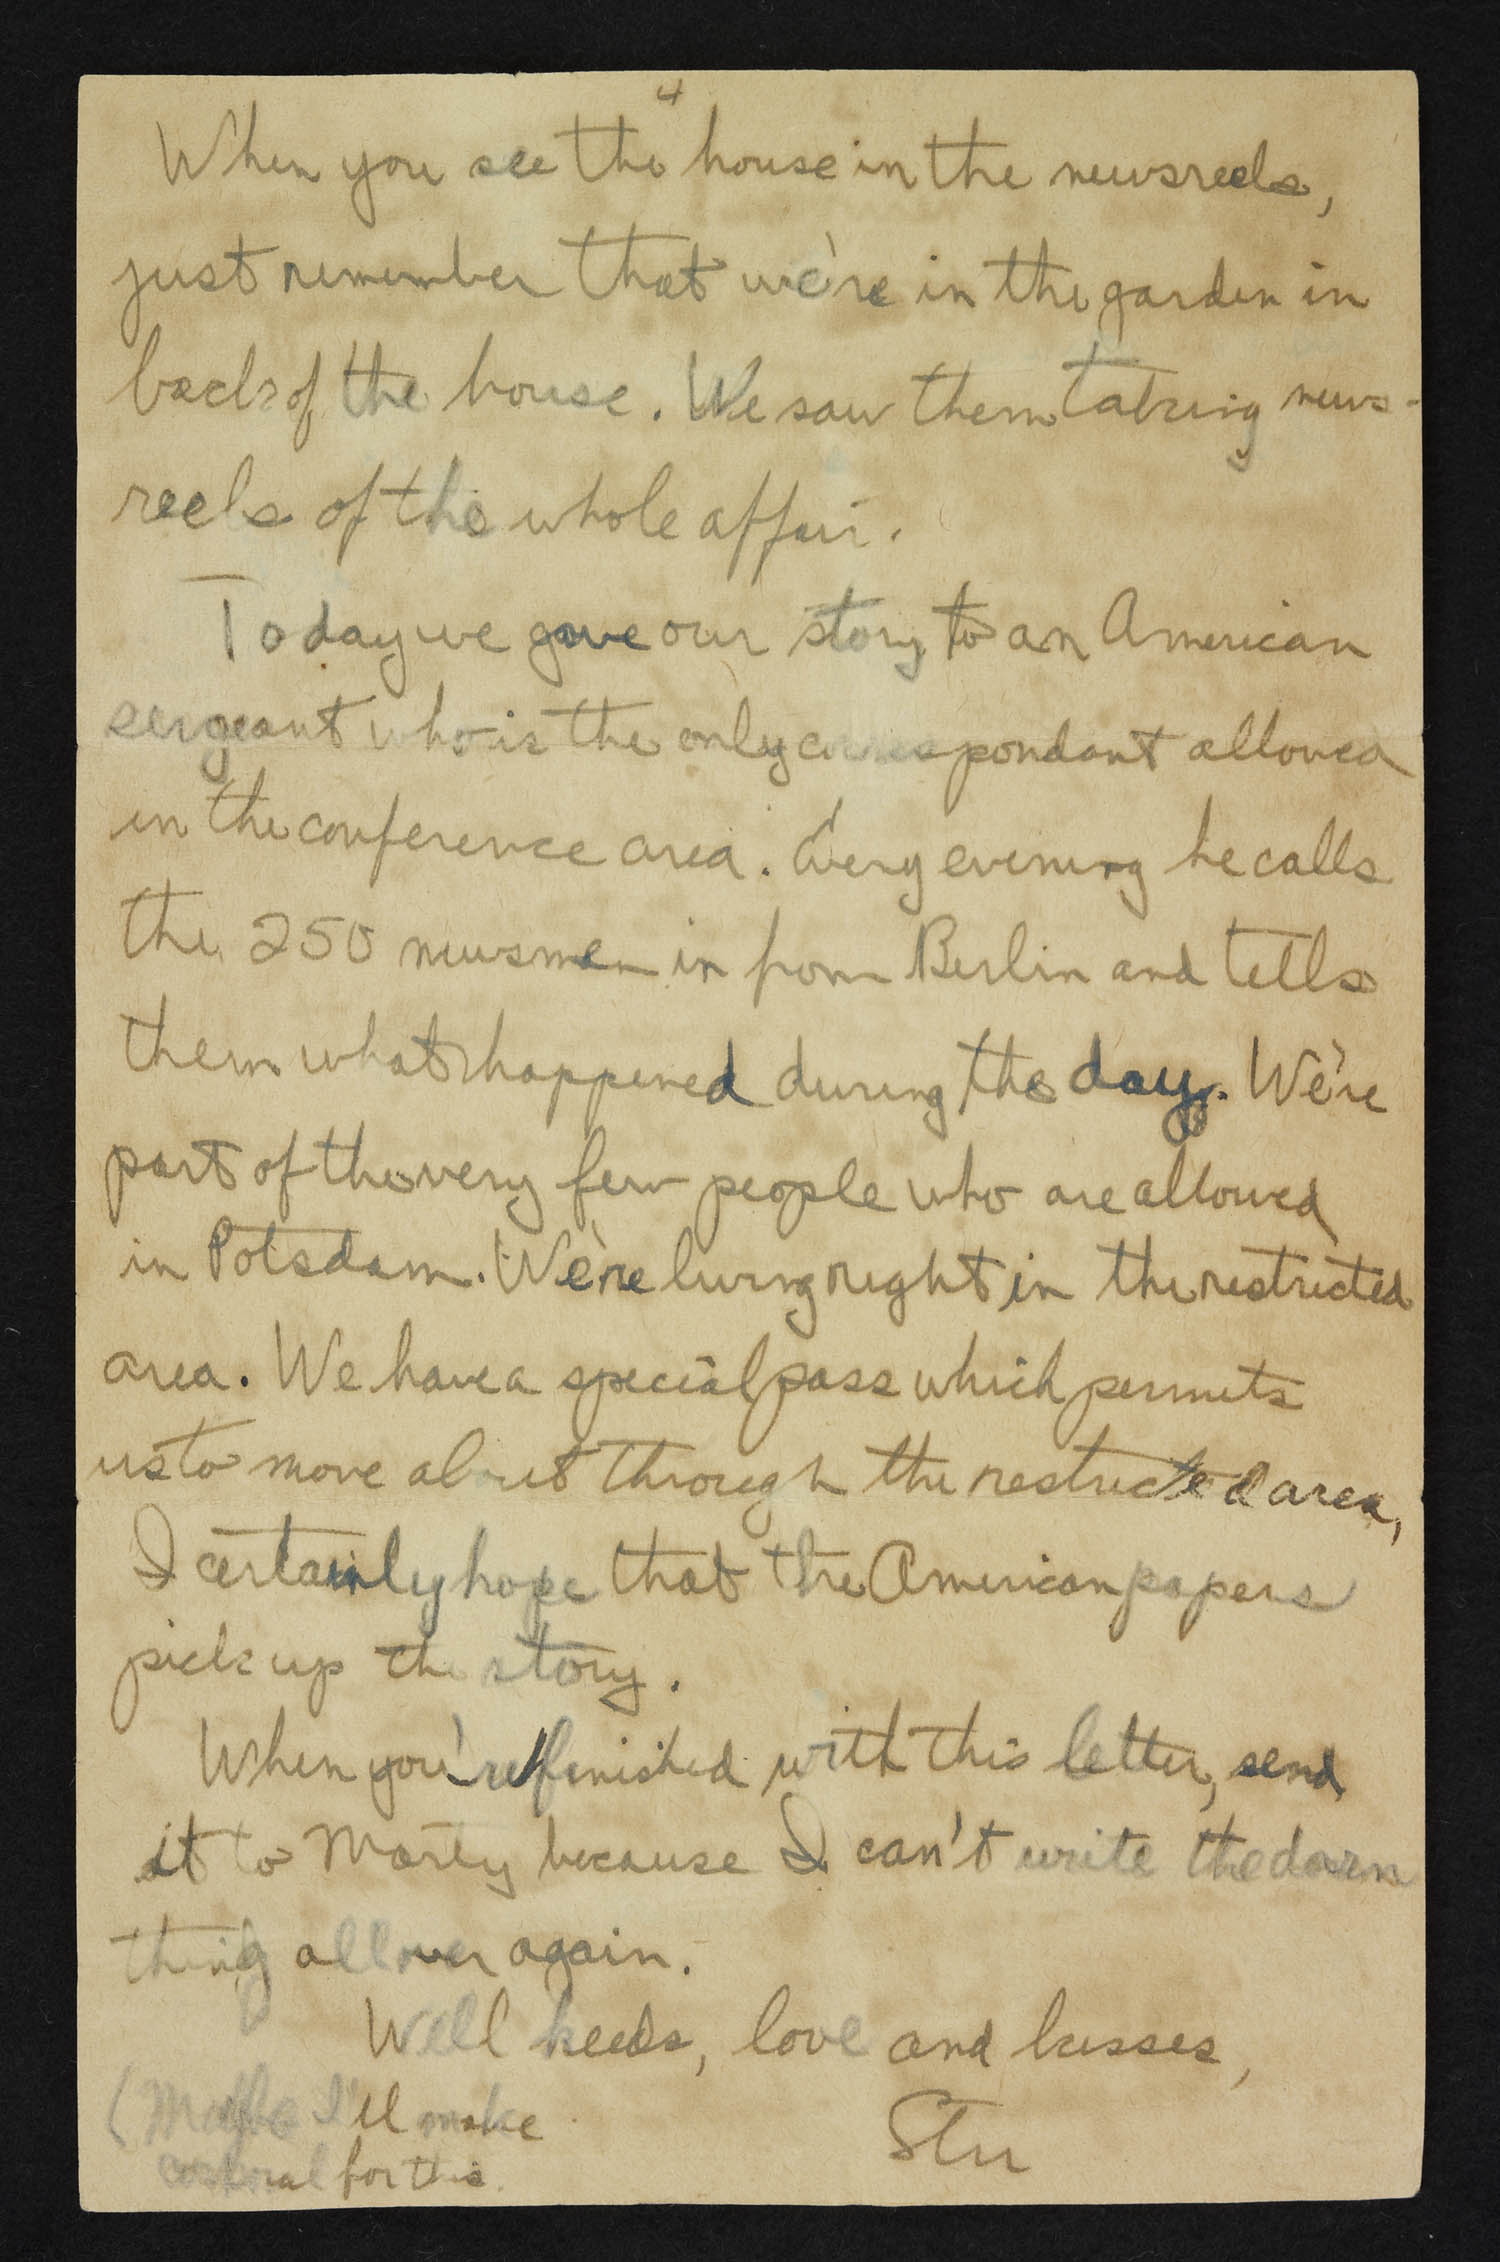 4
When you see the house in the newsreels,
just remember that we're in the garden in
back of the house. We saw them taking news-
reels of the whole affair.
Today we gave our story to an American
sergeant who is the only correspondant allowed
in the conference area. Every evening he calls
the 250 newsmen in from Berlin and tells
them what happened during the day. We're
part of the very few people who are allowed
in Potsdam. We're living right in the restricted
area. We have a special pass which permits
us to move about through the restricted area,
I certainly hope that the American papers
pick up the story.
When you're finished with this letter, send
it to Marty because I can't write the darn
thing all over again.
Well keeds, love and kisses,
Stu
(Maybe I'll make
corporal for this.